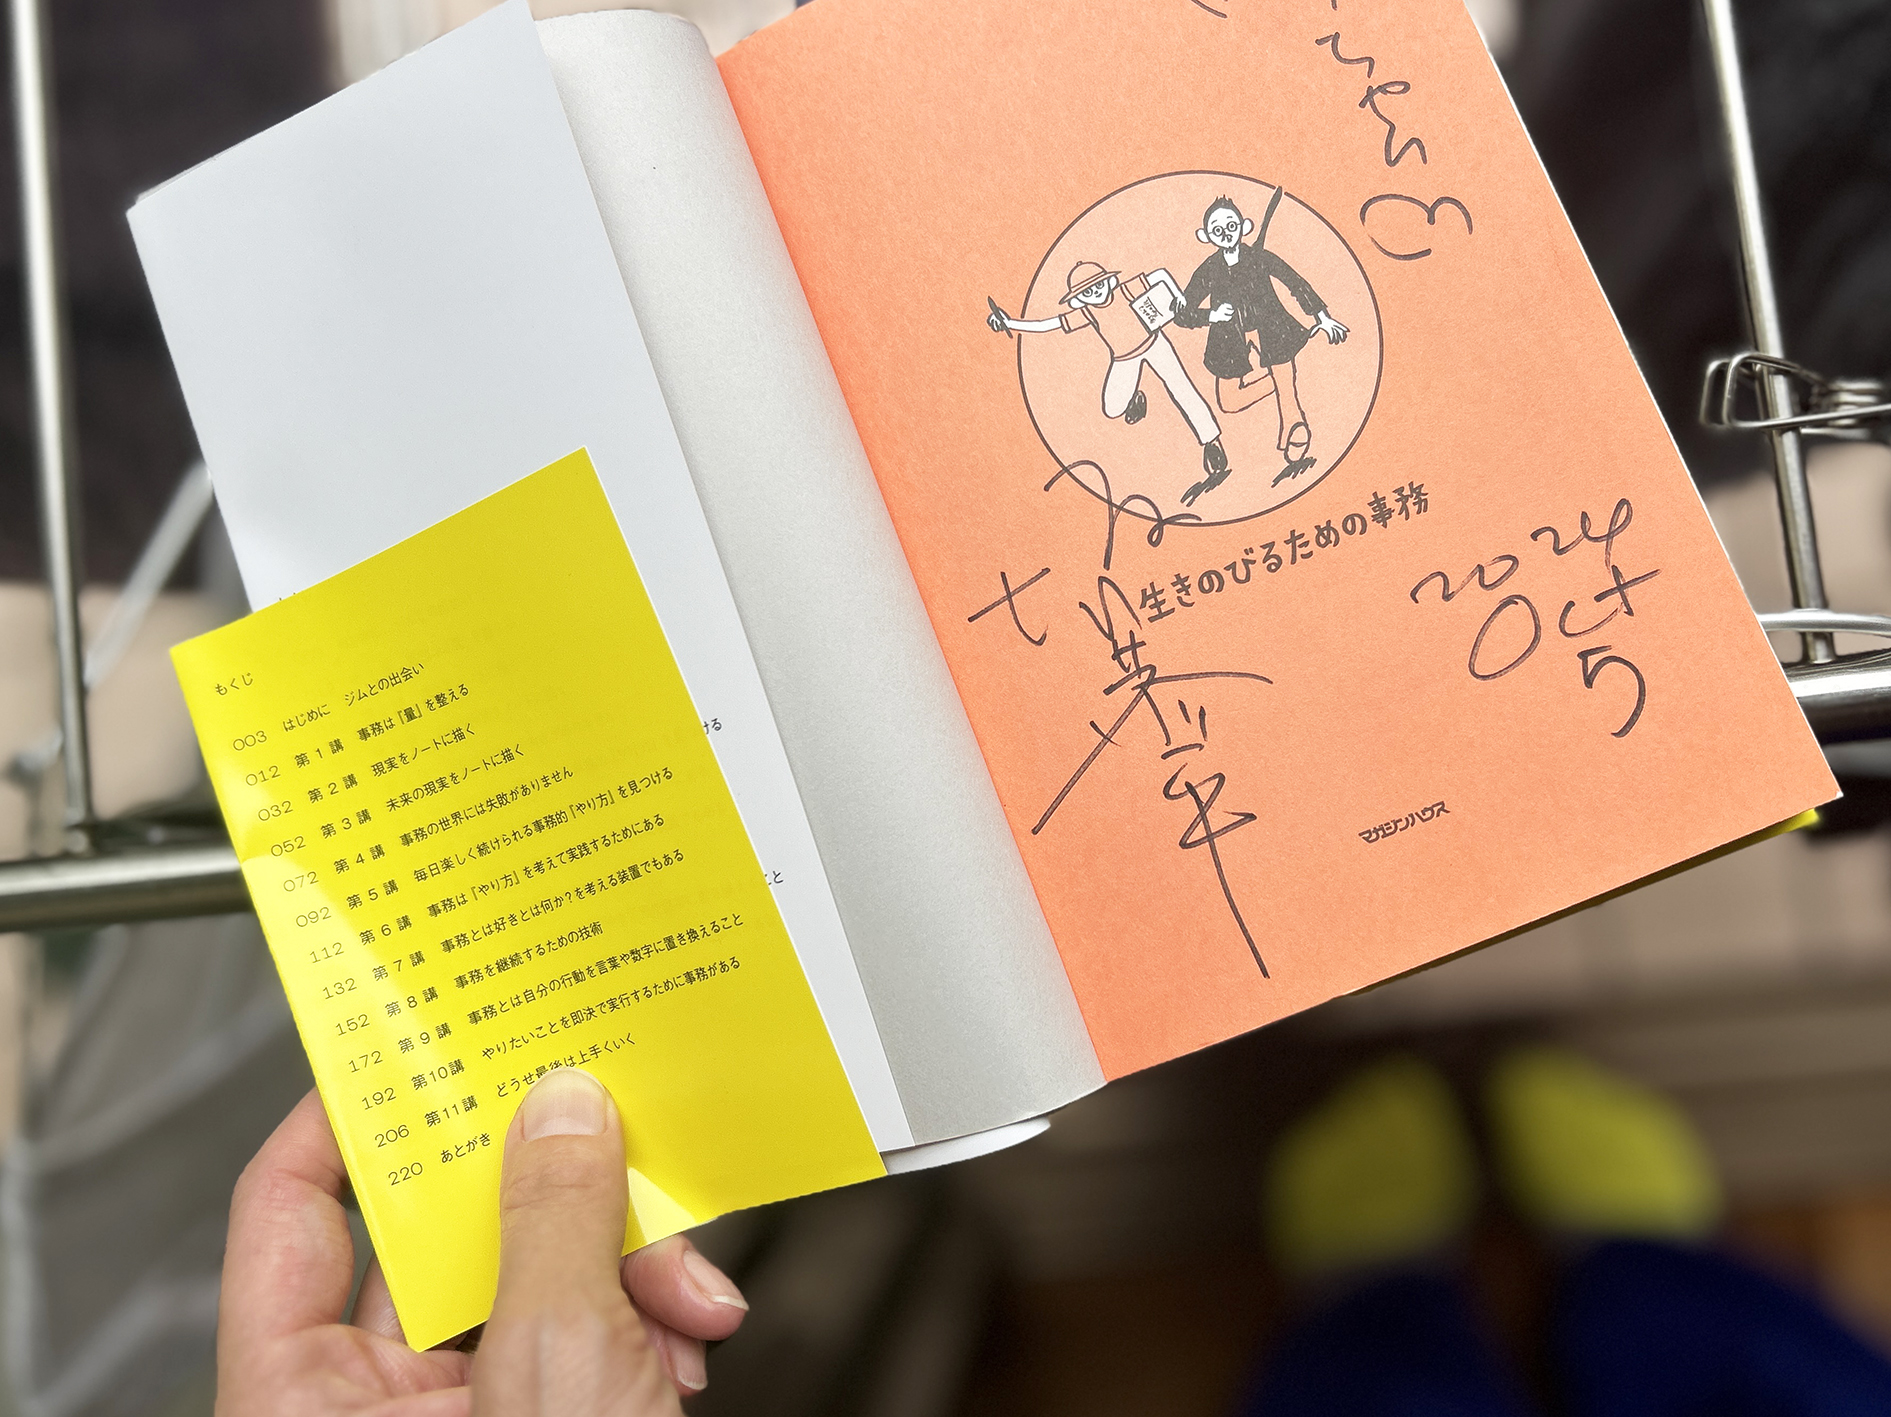 もくじ
003 はじめに ジムとの出会い
012 第1講 事務は『量』を整える
032 第2講 現実をノートに描く
052 第3講 未来の現実をノートに描く
072 第4講 事務の世界には失敗がありません
092 第5講 毎日楽しく続けられる事務的『やり方』を見つける
112 第6講 事務は『やり方』を考えて実践するためにある
132 第7講 事務とは好きとは何か?を考える装置でもある
152 第8講 事務を継続するための技術
172 第9講 事務とは自分の行動を言葉や数字に置き換えること
192 第10講 やりたいことを即決で実行するために事務がある
206 第11講 どうせ最後は上手くいく
220 あとがき
ける
こと
ちゃん
生きのびるための事務
2024
Oct
5
マガジンハウス